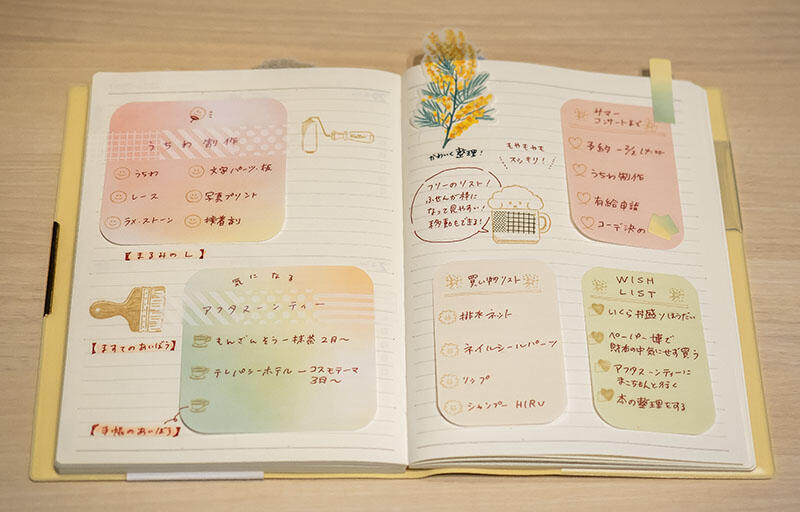 うちわ制作
うちわ
文字パーツ・板
レース
写真プリント
ラメ・ストーン
接着剤
【まるみのL】
気になる
アフタヌーンティー
もんざんそうー抹茶 2月〜
テレパシーホテルーコスモテーマ
3月〜
【ますてのあいぼう】
【手帳のあいぼう】
かわいく整理!
もやもやも
スッキリ!
フリーのリスト!
ふせんが枠に
なって見やすい!
移動もできる!
サマー
コンサートまで
うちわ制作
有給申請
コーデ決め
買い物リスト
排水ネット
ネイルシールパーツ
リップ
シャンプー HIRU
WISH
LIST
いくら丼盛りほうだい
ペーパー博で
財布の中気にせず買う
アフタヌーンティーに
まこちんと行く
本の整理をする